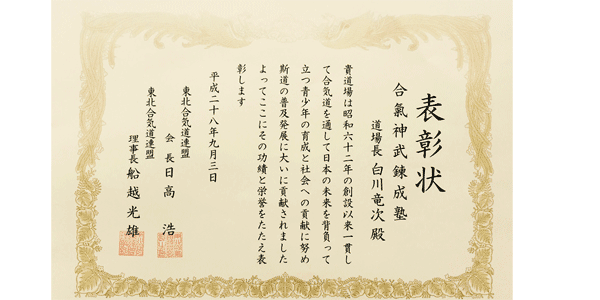 表彰状
合氣神武錬成塾
道場長 白川竜次 殿
貴道場は昭和六十二年の創設以来一貫し
て合気道を通して日本の未来を背負って
立つ青少年の育成と社会への貢献に努め
斯道の普及発展に大いに貢献されました
よってここにその功績と栄誉をたたえ表
彰します
平成二十八年九月三日
東北合気道連盟
会長 日高 浩
東北合気道連盟
理事長 船越光雄